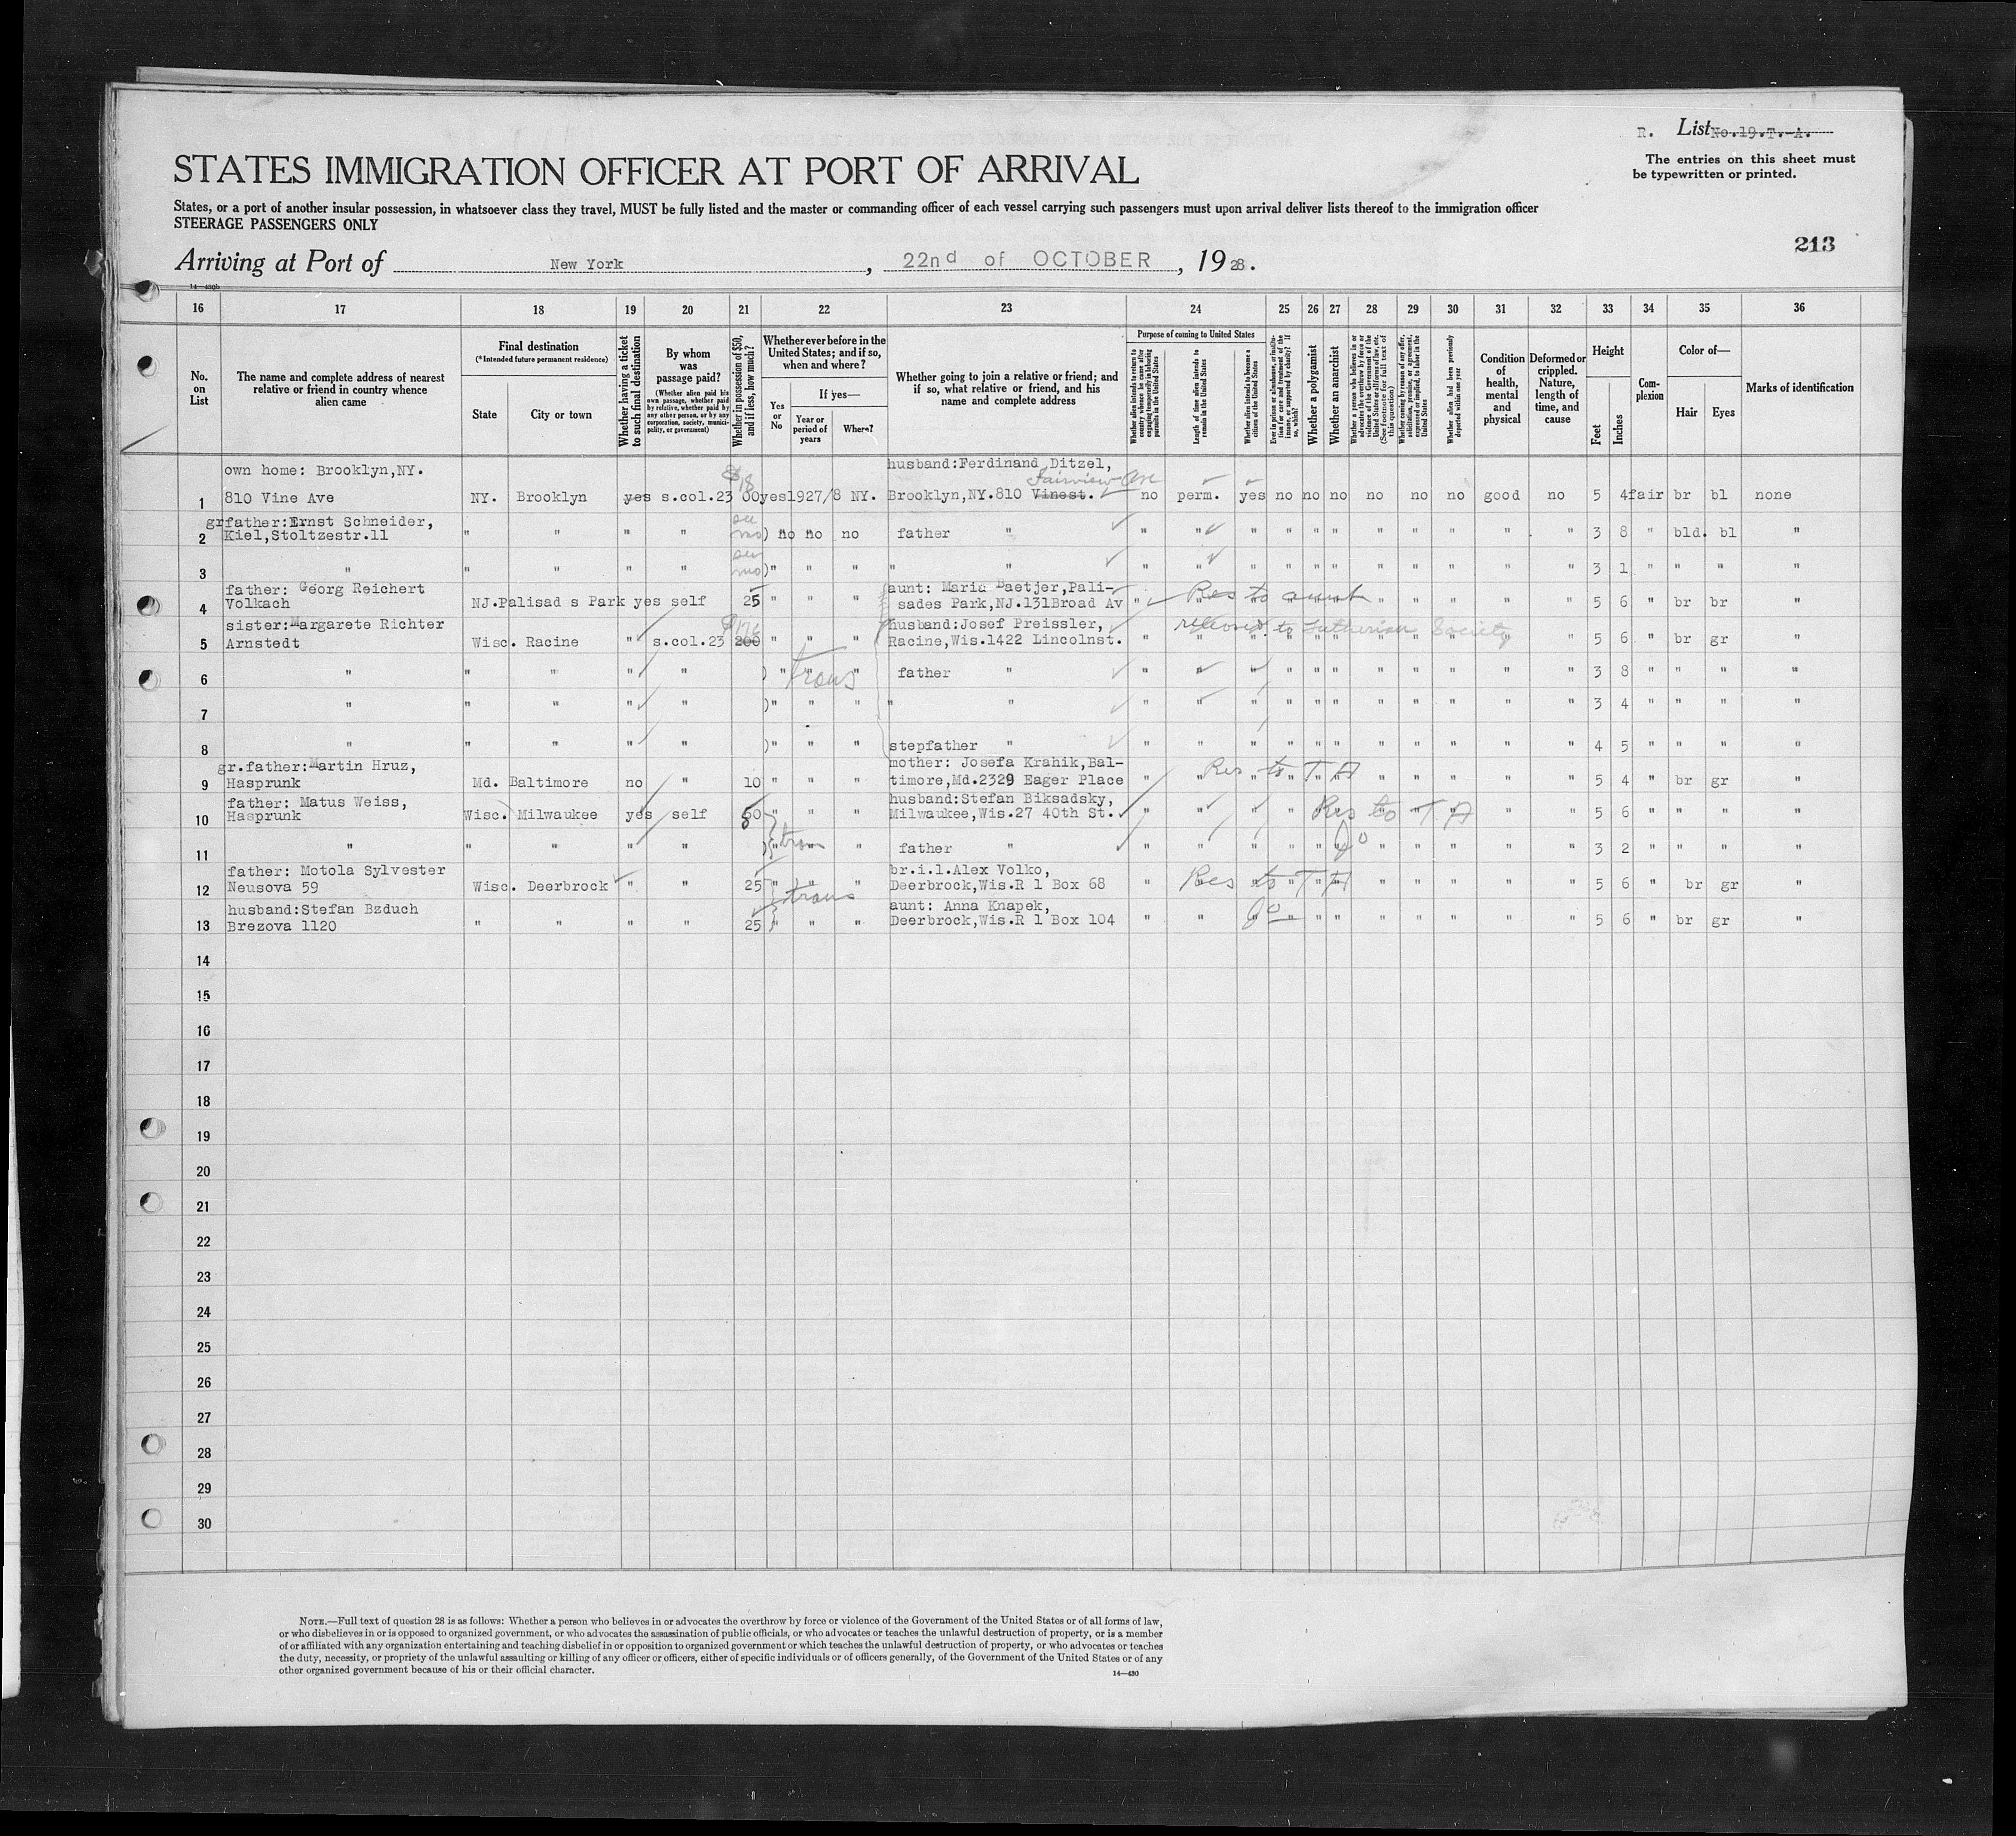 R. List No.19.T.-A.
The entries on this sheet must
be typewritten or printed.
STATES IMMIGRATION OFFICER AT PORT OF ARRIVAL
States, or a port of another insular possession, in whatsoever class they travel, MUST be fully listed and the master or commanding officer of each vessel carrying such passengers must upon arrival deliver lists thereof to the immigration officer
STEERAGE PASSENGERS ONLY
213
Arriving at Port of New York, 22nd of OCTOBER, 1928.
14—430b
16 17 18 19 20 21 22 23 24 25 26 27 28 29 30 31 32 33 34 35 36
No. on List
The name and complete address of nearest relative or friend in country whence alien came
Final destination
(*Intended future permanent residence)
State
City or town
Whether having a ticket to such final destination
By whom was passage paid?
(Whether alien paid his own passage, whether paid by relative, whether paid by any other person, or by any corporation, society, municipality, or government)
Whether in possession of $50, and if less, how much?
Whether ever before in the United States; and if so, when and where?
Yes or No
If yes—
Year or period of years
Where?
Whether going to join a relative or friend; and if so, what relative or friend, and his name and complete address
Purpose of coming to United States
Whether alien intends to return to country whence he came after engaging temporarily in laboring pursuits in the United States
Length of time alien intends to remain in the United States
Whether alien intends to become a citizen of the United States
Ever in prison or almshouse, or institution for care and treatment of the insane, or supported by charity? If so, which?
Whether a polygamist
Whether an anarchist
Whether a person who believes in or advocates the overthrow by force or violence of the Government of the United States or all forms of law, etc. (See footnote for full text of this question)
Whether coming by reason of any offer, solicitation, promise, or agreement, expressed or implied, to labor in the United States
Whether alien had been previously deported within one year
Condition of health, mental and physical
Deformed or crippled. Nature, length of time, and cause
Height
Feet
Inches
Complexion
Color of—
Hair
Eyes
Marks of identification
own home: Brooklyn,NY. $18 husband:Ferdinand Ditzel, Fairview Ave
1 810 Vine Ave NY. Brooklyn yes s.col.23 00 yes 1927/8 NY. Brooklyn,NY.810 Vinest. no perm. yes no no no no no no good no 5 4 fair br bl none
gr father:Ernst Schneider,
2 Kiel,Stoltzestr.11 " " " " ) no no no father " " " " " " " " " " " " 3 8 " bld. bl "
3 " " " " " )" " " " " " " " " " " " " " " " 3 1 " " " "
father: Georg Reichert aunt: Maria Baetjer,Pali-
4 Volkach NJ.Palisad s Park yes self 25 " " " sades Park,NJ.131Broad Av " Res to aunt " " " " " 5 6 " br br "
sister:Margarete Richter $176 husband:Josef Preissler, released to Lutheran Society
5 Arnstedt Wisc. Racine " s.col.23 200 " " " Racine,Wis.1422 Lincolnst. " " " " " " " " " " " 5 6 " br gr "
6 " " " " " ) " " " trans father " " " " " " " " " " " " 3 8 " " " "
7 " " " " " )" " " " " " " " " " " " " " " " 3 4 " " " "
8 " " " " " )" " " stepfather " " " " " " " " " " " " 4 5 " " " "
gr.father:Martin Hruz, mother: Josefa Krahik,Bal-
9 Hasprunk Md. Baltimore no " 10 " " " timore,Md.2329 Eager Place " Res to T A " " " " " 5 4 " br gr "
father: Matus Weiss, husband:Stefan Biksadsky,
10 Hasprunk Wisc. Milwaukee yes self 50 " " " Milwaukee,Wis.27 40th St. " " " " Res to T A " " 5 6 " " " "
11 " " " " " )" trans " father " " " " " " do " " " " " 3 2 " " " "
father: Motola Sylvester br.i.l.Alex Volko,
12 Neusova 59 Wisc. Deerbrock " " 25 " " " trans Deerbrock,Wis.R 1 Box 68 " Res to T A " " " " " 5 6 " br gr "
husband:Stefan Bzduch aunt: Anna Knapek,
13 Brezova 1120 " " " " 25 " " " Deerbrock,Wis.R 1 Box 104 " " do " " " " " " " " 5 6 " br gr "
14
15
16
17
18
19
20
21
22
23
24
25
26
27
28
29
30
NOTE.—Full text of question 28 is as follows: Whether a person who believes in or advocates the overthrow by force or violence of the Government of the United States or of all forms of law,
or who disbelieves in or is opposed to organized government, or who advocates the assassination of public officials, or who advocates or teaches the unlawful destruction of property, or is a member
of or affiliated with any organization entertaining and teaching disbelief in or opposition to organized government or which teaches the unlawful destruction of property, or who advocates or teaches
the duty, necessity, or propriety of the unlawful assaulting or killing of any officer or officers, either of specific individuals or of officers generally, of the Government of the United States or of any
other organized government because of his or their official character.
14—430